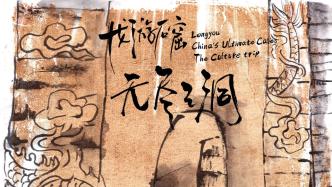 龙游石窟
Longyou
China's Ultimate Caves
The Culture trip
无尽之洞